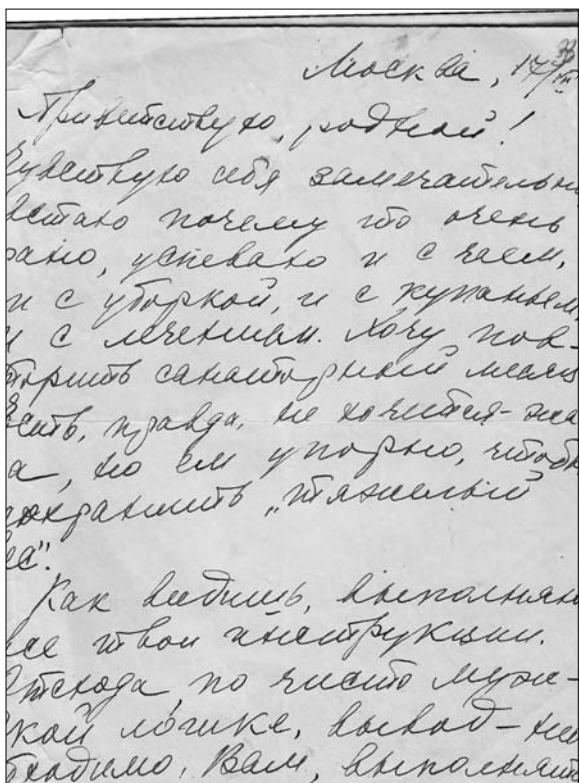 Москва, 17/VII
Приветствую, родной!
Чувствую себя замечательн
Встаю почему то очень
рано, успеваю и с чаем,
и с уборкой, и с купаньем
и с лечением. Хочу пов-
торить санаторный месяц
Есть, правда, не хочется - жа
а, но ем упорно, чтобы
сохранить „тяжелый
вес".
Как видишь, выполняю
все твои инструкции.
Отсюда по чисто муж-
ской логике, вывод - нео
бходимо, Вам, выполнят